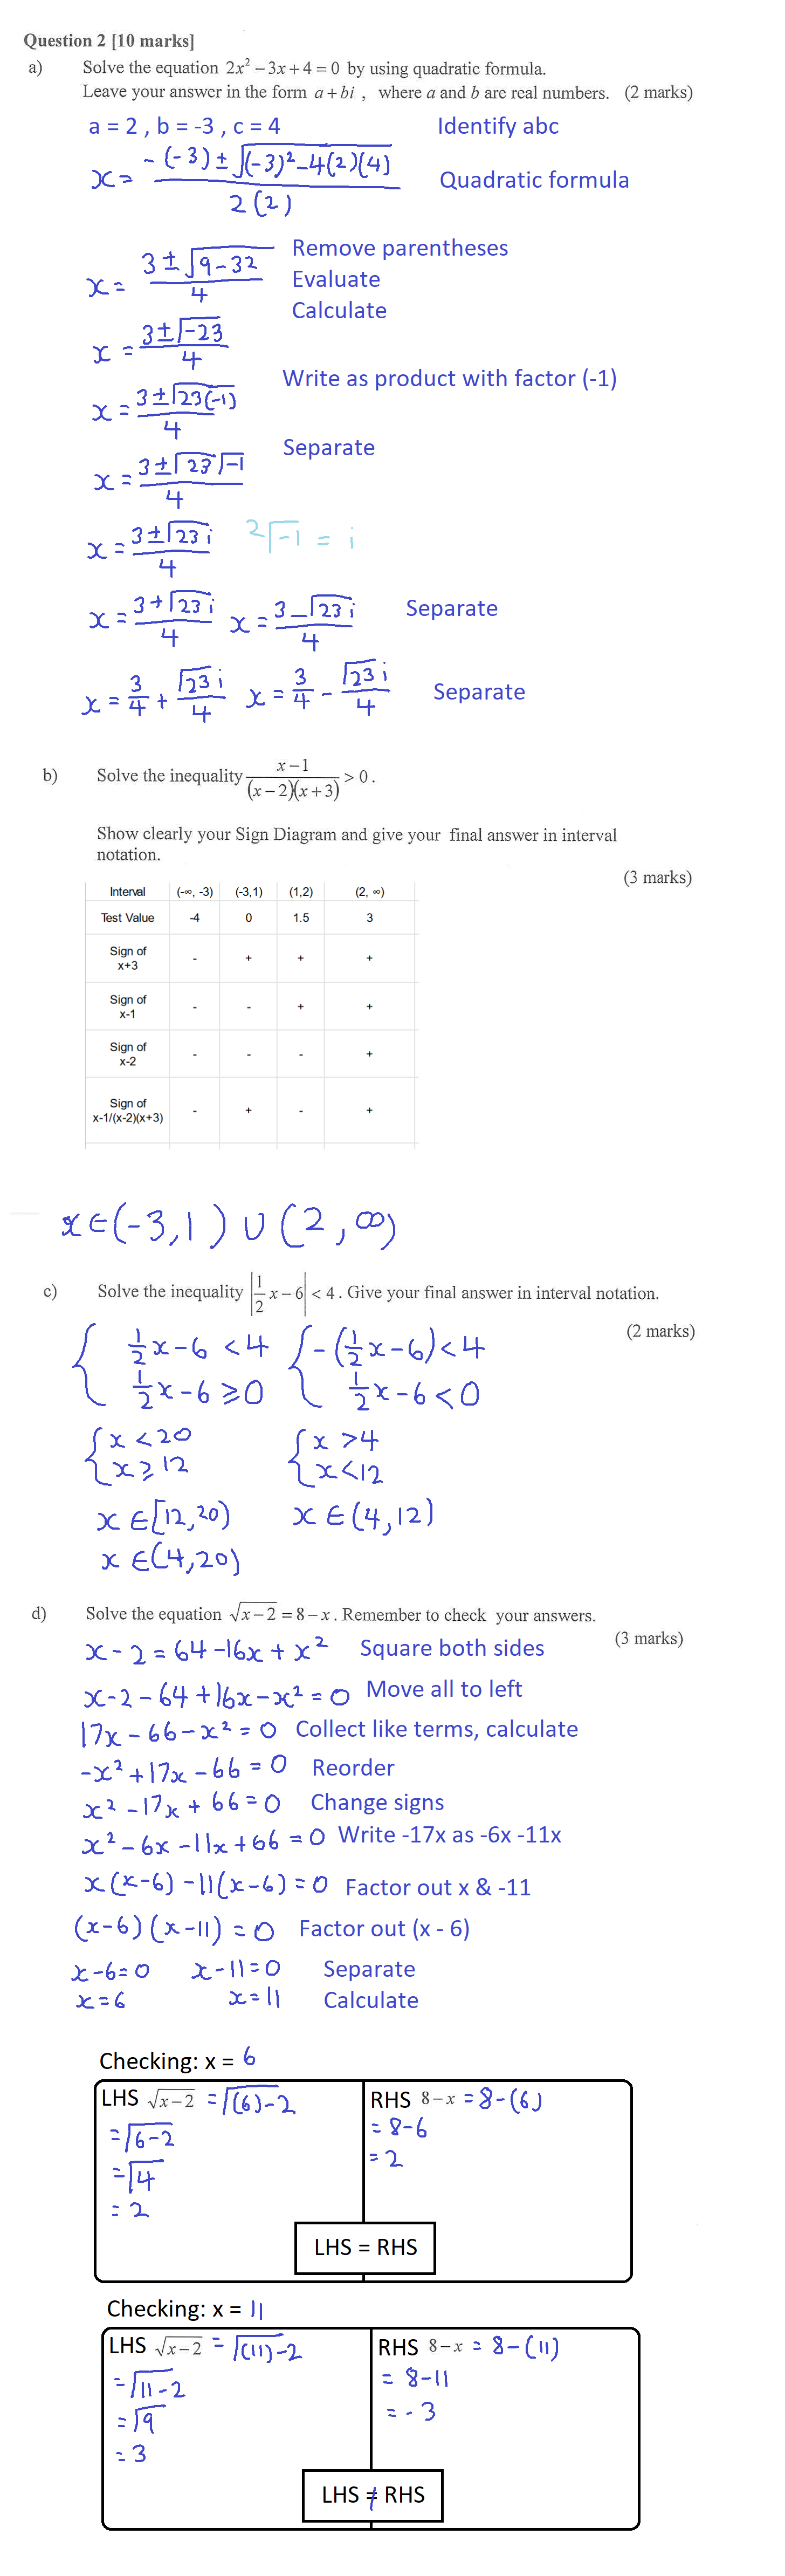 Question 2 [10 marks]
a) Solve the equation 2x² − 3x + 4 = 0 by using quadratic formula.
Leave your answer in the form a + bi , where a and b are real numbers. (2 marks)
a = 2 , b = -3 , c = 4 Identify abc
x = (-(-3) ± √((-3)² - 4(2)(4))) / 2(2) Quadratic formula
Remove parentheses
x = (3 ± √(9-32)) / 4 Evaluate
Calculate
x = (3 ± √-23) / 4
Write as product with factor (-1)
x = (3 ± √(23(-1))) / 4
Separate
x = (3 ± √23 √-1) / 4
x = (3 ± √23 i) / 4 ²√-1 = i
x = (3 + √23 i) / 4 x = (3 - √23 i) / 4 Separate
x = 3/4 + √23 i / 4 x = 3/4 - √23 i / 4 Separate
b) Solve the inequality (x − 1) / ((x − 2)(x + 3)) > 0 .
Show clearly your Sign Diagram and give your final answer in interval
notation.
(3 marks)
Interval (-∞, -3) (-3,1) (1,2) (2, ∞)
Test Value -4 0 1.5 3
Sign of
x+3 - + + +
Sign of
x-1 - - + +
Sign of
x-2 - - - +
Sign of
x-1/(x-2)(x+3) - + - +
x ∈ (-3,1) ∪ (2,∞)
c) Solve the inequality |1/2 x − 6| < 4 . Give your final answer in interval notation.
(2 marks)
{ 1/2 x - 6 < 4 { -(1/2 x - 6) < 4
1/2 x - 6 ⩾ 0 1/2 x - 6 < 0
{ x < 20 { x > 4
x ⩾ 12 x < 12
x ∈ [12,20) x ∈ (4,12)
x ∈ (4,20)
d) Solve the equation √(x − 2) = 8 − x . Remember to check your answers.
(3 marks)
x - 2 = 64 - 16x + x² Square both sides
x - 2 - 64 + 16x - x² = 0 Move all to left
17x - 66 - x² = 0 Collect like terms, calculate
-x² + 17x - 66 = 0 Reorder
x² - 17x + 66 = 0 Change signs
x² - 6x - 11x + 66 = 0 Write -17x as -6x -11x
x(x-6) - 11(x-6) = 0 Factor out x & -11
(x-6)(x-11) = 0 Factor out (x - 6)
x-6=0 x-11=0 Separate
x=6 x=11 Calculate
Checking: x = 6
LHS √(x−2) = √((6)-2) RHS 8−x = 8-(6)
= √(6-2) = 8-6
= √4 = 2
= 2
LHS = RHS
Checking: x = 11
LHS √(x−2) = √((11)-2) RHS 8−x = 8-(11)
= √(11-2) = 8-11
= √9 = -3
= 3
LHS ≠ RHS